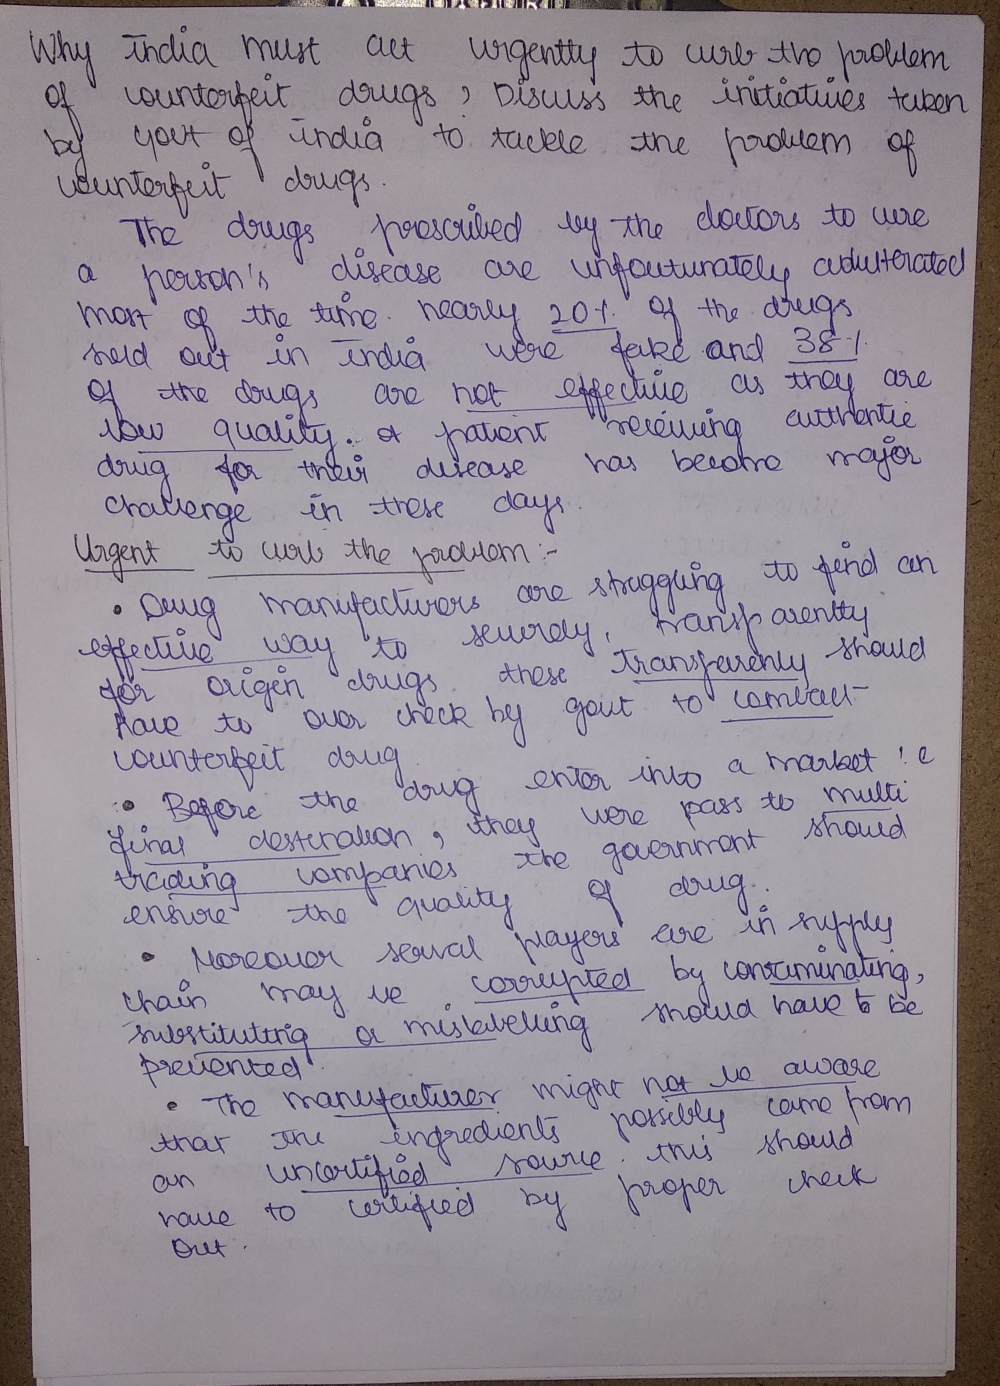 Why india must act urgently to curb the problem
of counterfeit drugs, Discuss the initiatives taken
by govt of india to tackle the problem of
counterfeit drugs.
The drugs prescribed by the doctors to cure
a person's disease are unfortunately adulterated
most of the time. nearly 20% of the drugs
sold out in india were fake and 38%
of the drugs are not effective as they are
low quality. A patient receiving authentic
drug for their disease has become major
challenge in these days.
Urgent to curb the problem:-
• Drug manufacturers are struggling to find an
effective way to securely, transparently
for origin drugs these transparently should
have to over check by govt to combact
counterfeit drug
• Before the drug enter into a market i.e
final desteration, they were pass to multi
trading companies the government should
ensure the quality of drug.
• Moreover serval players are in supply
chain may be corrupted by contaminating,
substituting or mislabelling should have to be
prevented.
• The manufacturer might not be aware
that the ingredients possibly came from
an uncertified source. this should
have to certified by proper check
out.